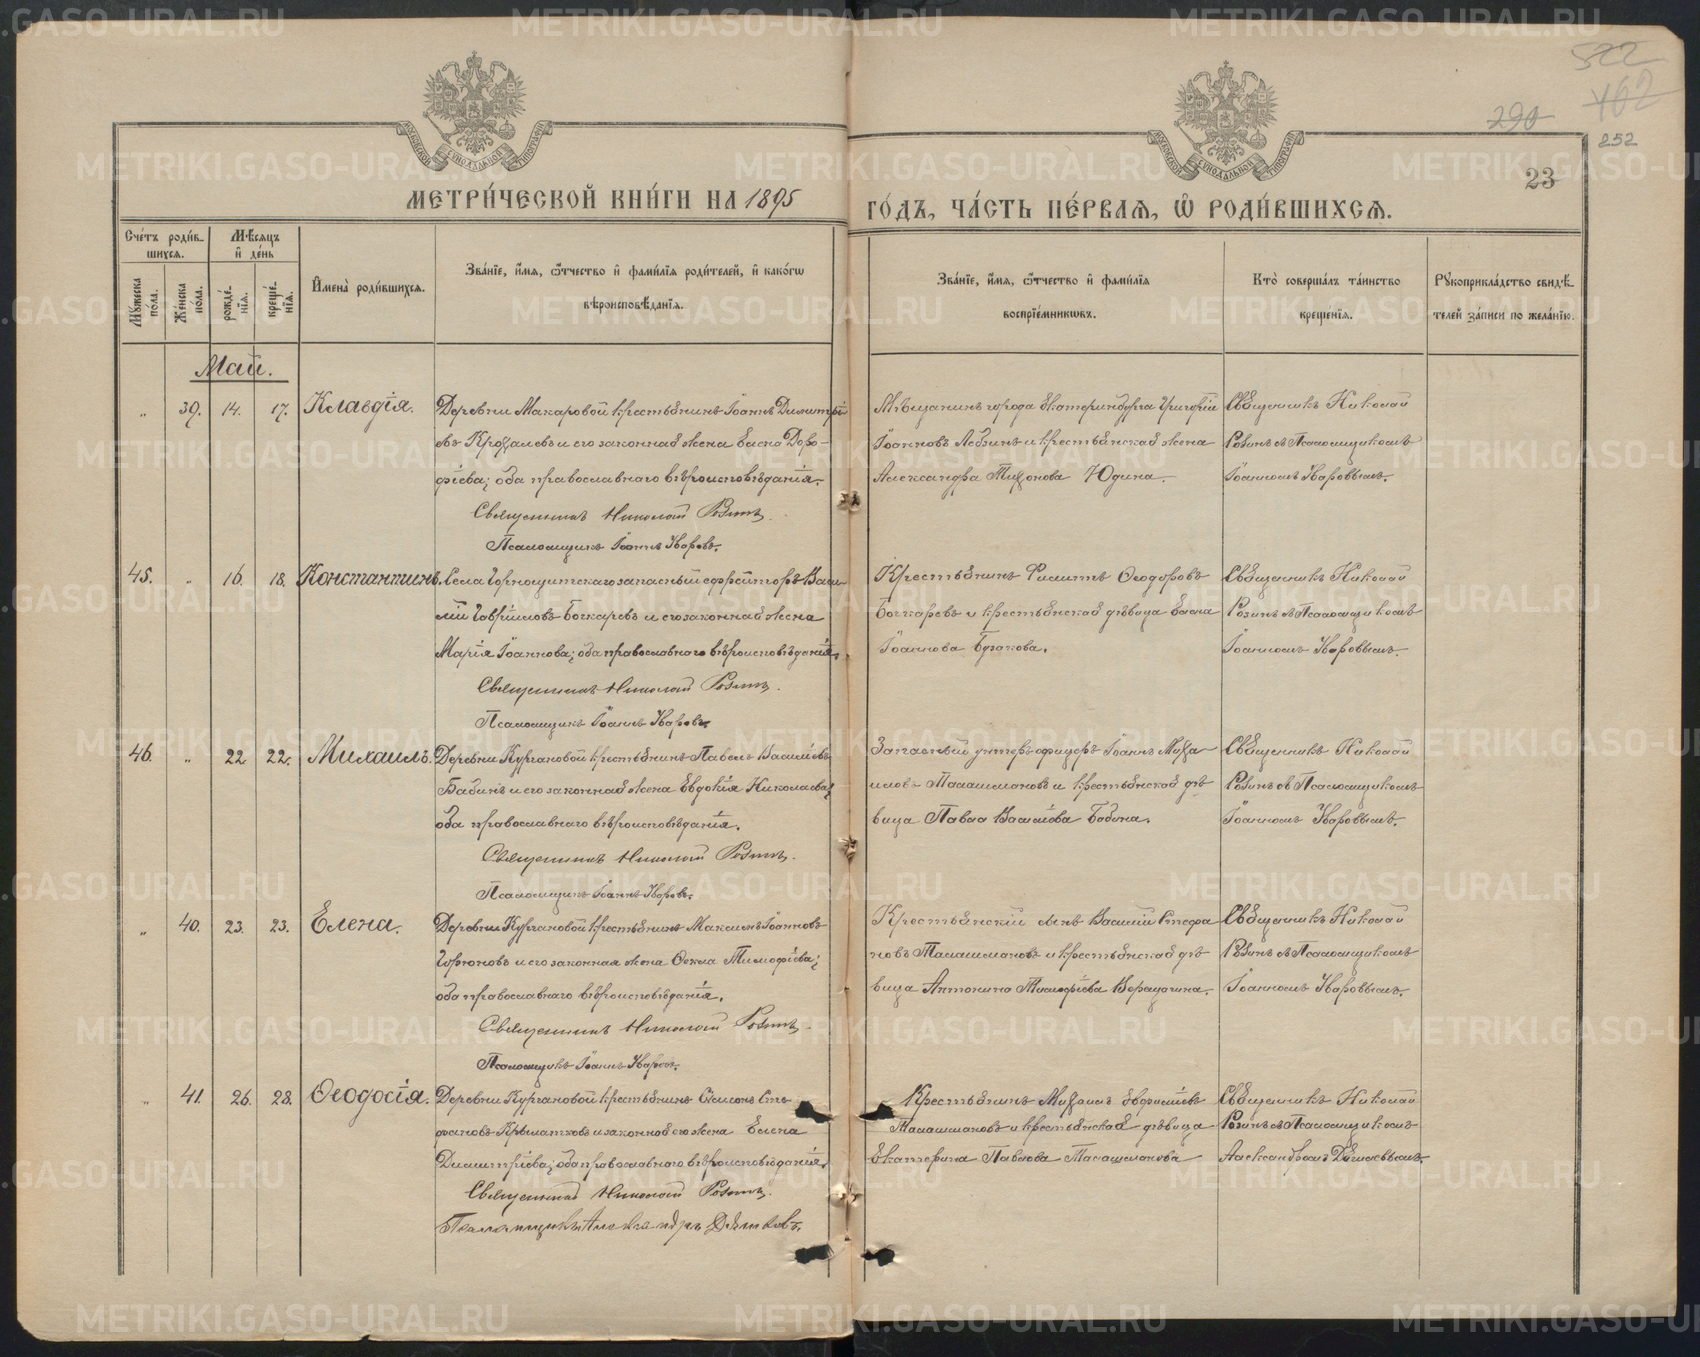 522
462
290
252
23
МОСКОВСКОЙ СѴНОДАЛЬНОЙ ТИПОГРАФІИ
МЕТРИ́ЧЕСКОЙ КНИ́ГИ НА 1895
ГО́ДЪ, ЧА́СТЬ ПЕ́РВАѦ, Ѽ РОДИ́ВШИХСѦ.
Сче́тъ роди́вшихсѧ.
Мѣ́сѧцъ и҆ де́нь
Мꙋ́жеска по́ла.
Же́нска по́ла.
рожде́нїѧ.
креще́нїѧ.
И҆мена̀ роди́вшихсѧ.
Зва́нїе, и҆́мѧ, ѻ҆́тчество и҆ фами́лїѧ роди́телей, и҆ како́гѡ
вѣроисповѣ́данїѧ.
Зва́нїе, и҆́мѧ, ѻ҆́тчество и҆ фами́лїѧ
воспрїе́мникѡвъ.
Кто̀ соверша́лъ та́инство
креще́нїѧ.
Рꙋкоприкла́дство свидѣ́телей за́писи по жела́нїю.
Май.
„ 39. 14. 17. Клавдія.
Деревни Макаровой крестьянинъ Іоаннъ Димитрі-
евъ и его законная жена Елена Доро-
фіева; оба православнаго вѣроисповѣданія.
Священникъ Николай
Псаломщикъ Іоаннъ Уваровъ.
Мѣщанинъ города Екатеринбурга Григорій
Іоанновъ и крестьянская жена
Александра Тихонова Юдина.
Священникъ Николай
съ Псаломщикомъ
Іоанномъ Уваровымъ.
45. „ 16. 18. Константинъ.
Села Горнощитскаго запасный ефрейторъ Васи-
лій Гавріиловъ Бочкаревъ и его законная жена
Марія Іоаннова; оба православнаго вѣроисповѣданія.
Священникъ Николай
Псаломщикъ Іоаннъ Уваровъ.
Крестьянинъ Филиппъ Ѳеодоровъ
Бочкаревъ и крестьянская дѣвица Елена
Іоаннова
Священникъ Николай
съ Псаломщикомъ
Іоанномъ Уваровымъ.
46. „ 22. 22. Михаилъ.
Деревни Кургановой крестьянинъ Павелъ Василіевъ
Бабинъ и его законная жена Евдокія Николаева;
оба православнаго вѣроисповѣданія.
Священникъ Николай
Псаломщикъ Іоаннъ Уваровъ.
Запасный унтеръ-офицеръ Іоаннъ Миха-
иловъ Талашмановъ и крестьянская дѣ-
вица Павла Василіева Бабина.
Священникъ Николай
съ Псаломщикомъ
Іоанномъ Уваровымъ.
„ 40. 23. 23. Елена.
Деревни Кургановой крестьянинъ Максимъ Іоанновъ
и его законная жена Ѳекла Тимофіева;
оба православнаго вѣроисповѣданія.
Священникъ Николай
Псаломщикъ Іоаннъ Уваровъ.
Крестьянскій сынъ Василій Стефа
новъ Талашмановъ и крестьянская дѣ-
вица Антонина Тимофіева
Священникъ Николай
съ Псаломщикомъ
Іоанномъ Уваровымъ.
„ 41. 26. 28. Ѳеодосія.
Деревни Кургановой крестьянинъ Симеонъ Сте-
фановъ и законная его жена Елена
Димитріева; оба православнаго вѣроисповѣданія.
Священникъ Николай
Псаломщикъ Александръ
Крестьянинъ Михаилъ
Талашмановъ и крестьянская дѣвица
Екатерина Павлова Талашманова
Священникъ Николай
съ Псаломщикомъ
Александромъ
METRIKI.GASO-URAL.RU